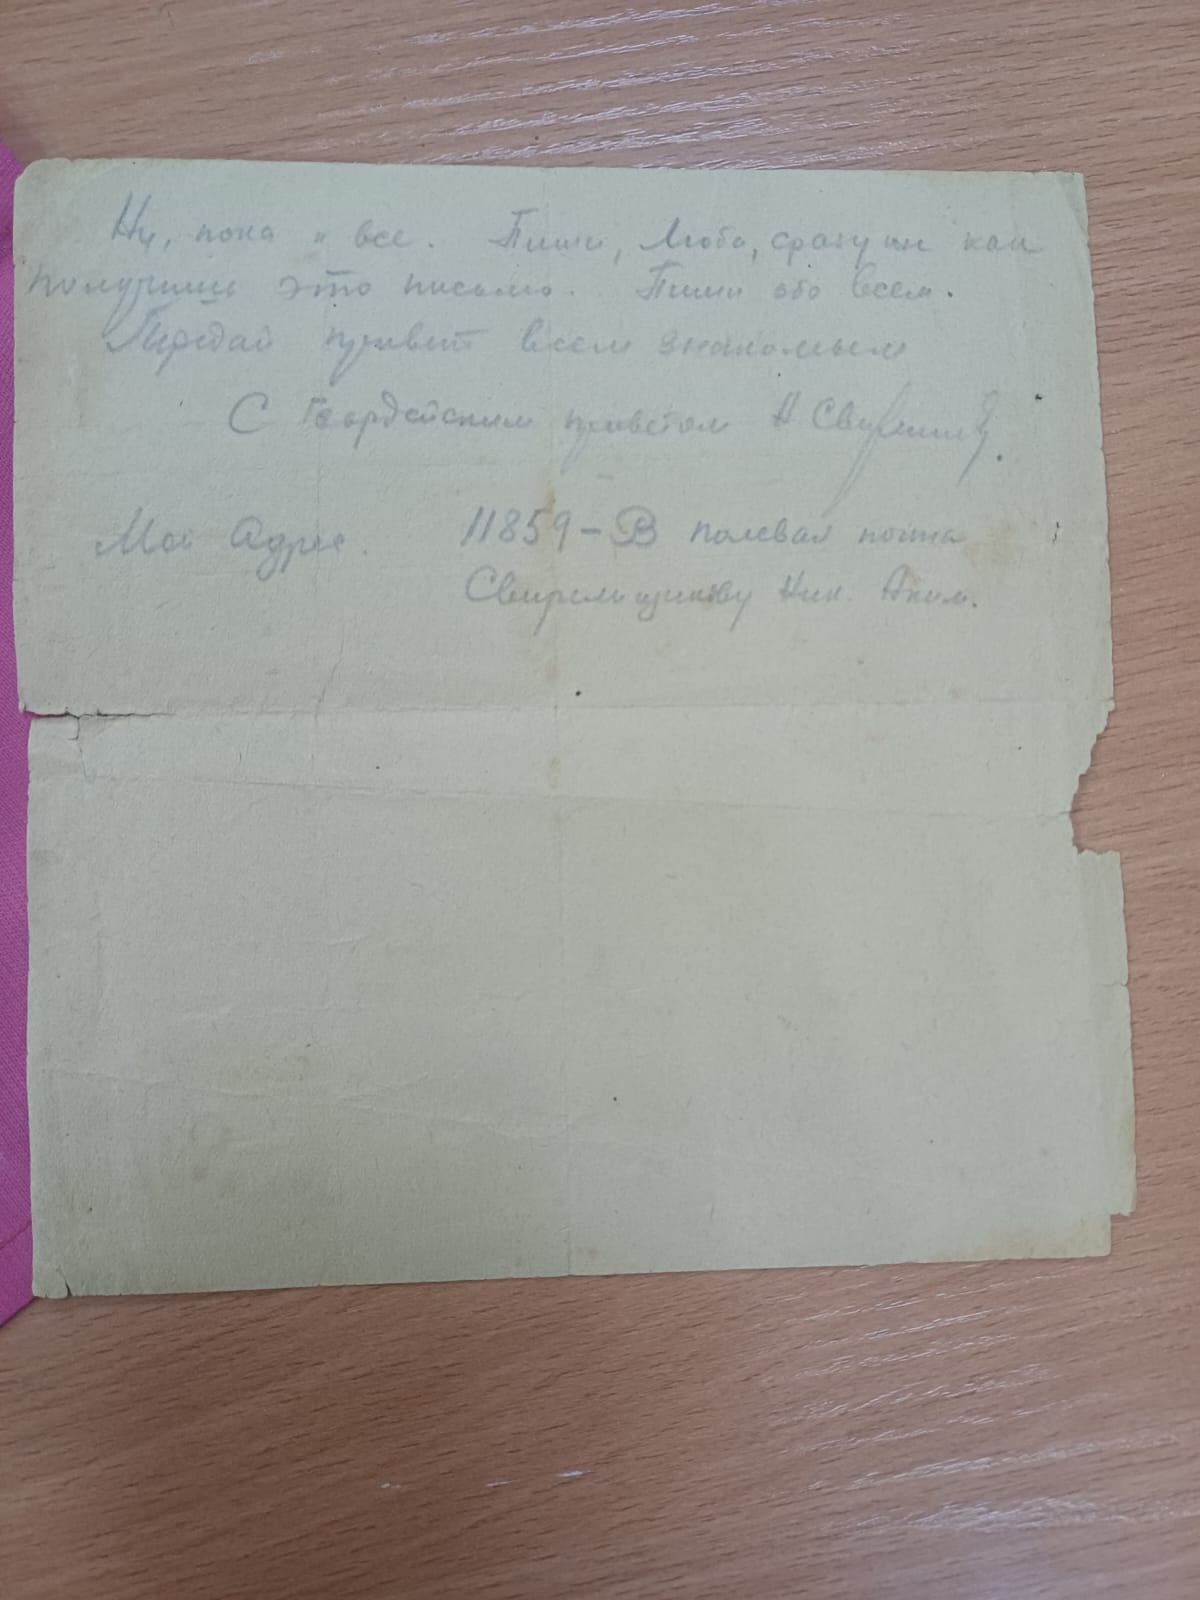 Ну, пока и все. Пиши, Люба, сразу же как
получишь это письмо. Пиши обо всем.
Передай привет всем знакомым
С Гвардейским приветом Н
Мой Адрес. 11859-В полевая почта
Свирельщикову Ник. Аким.